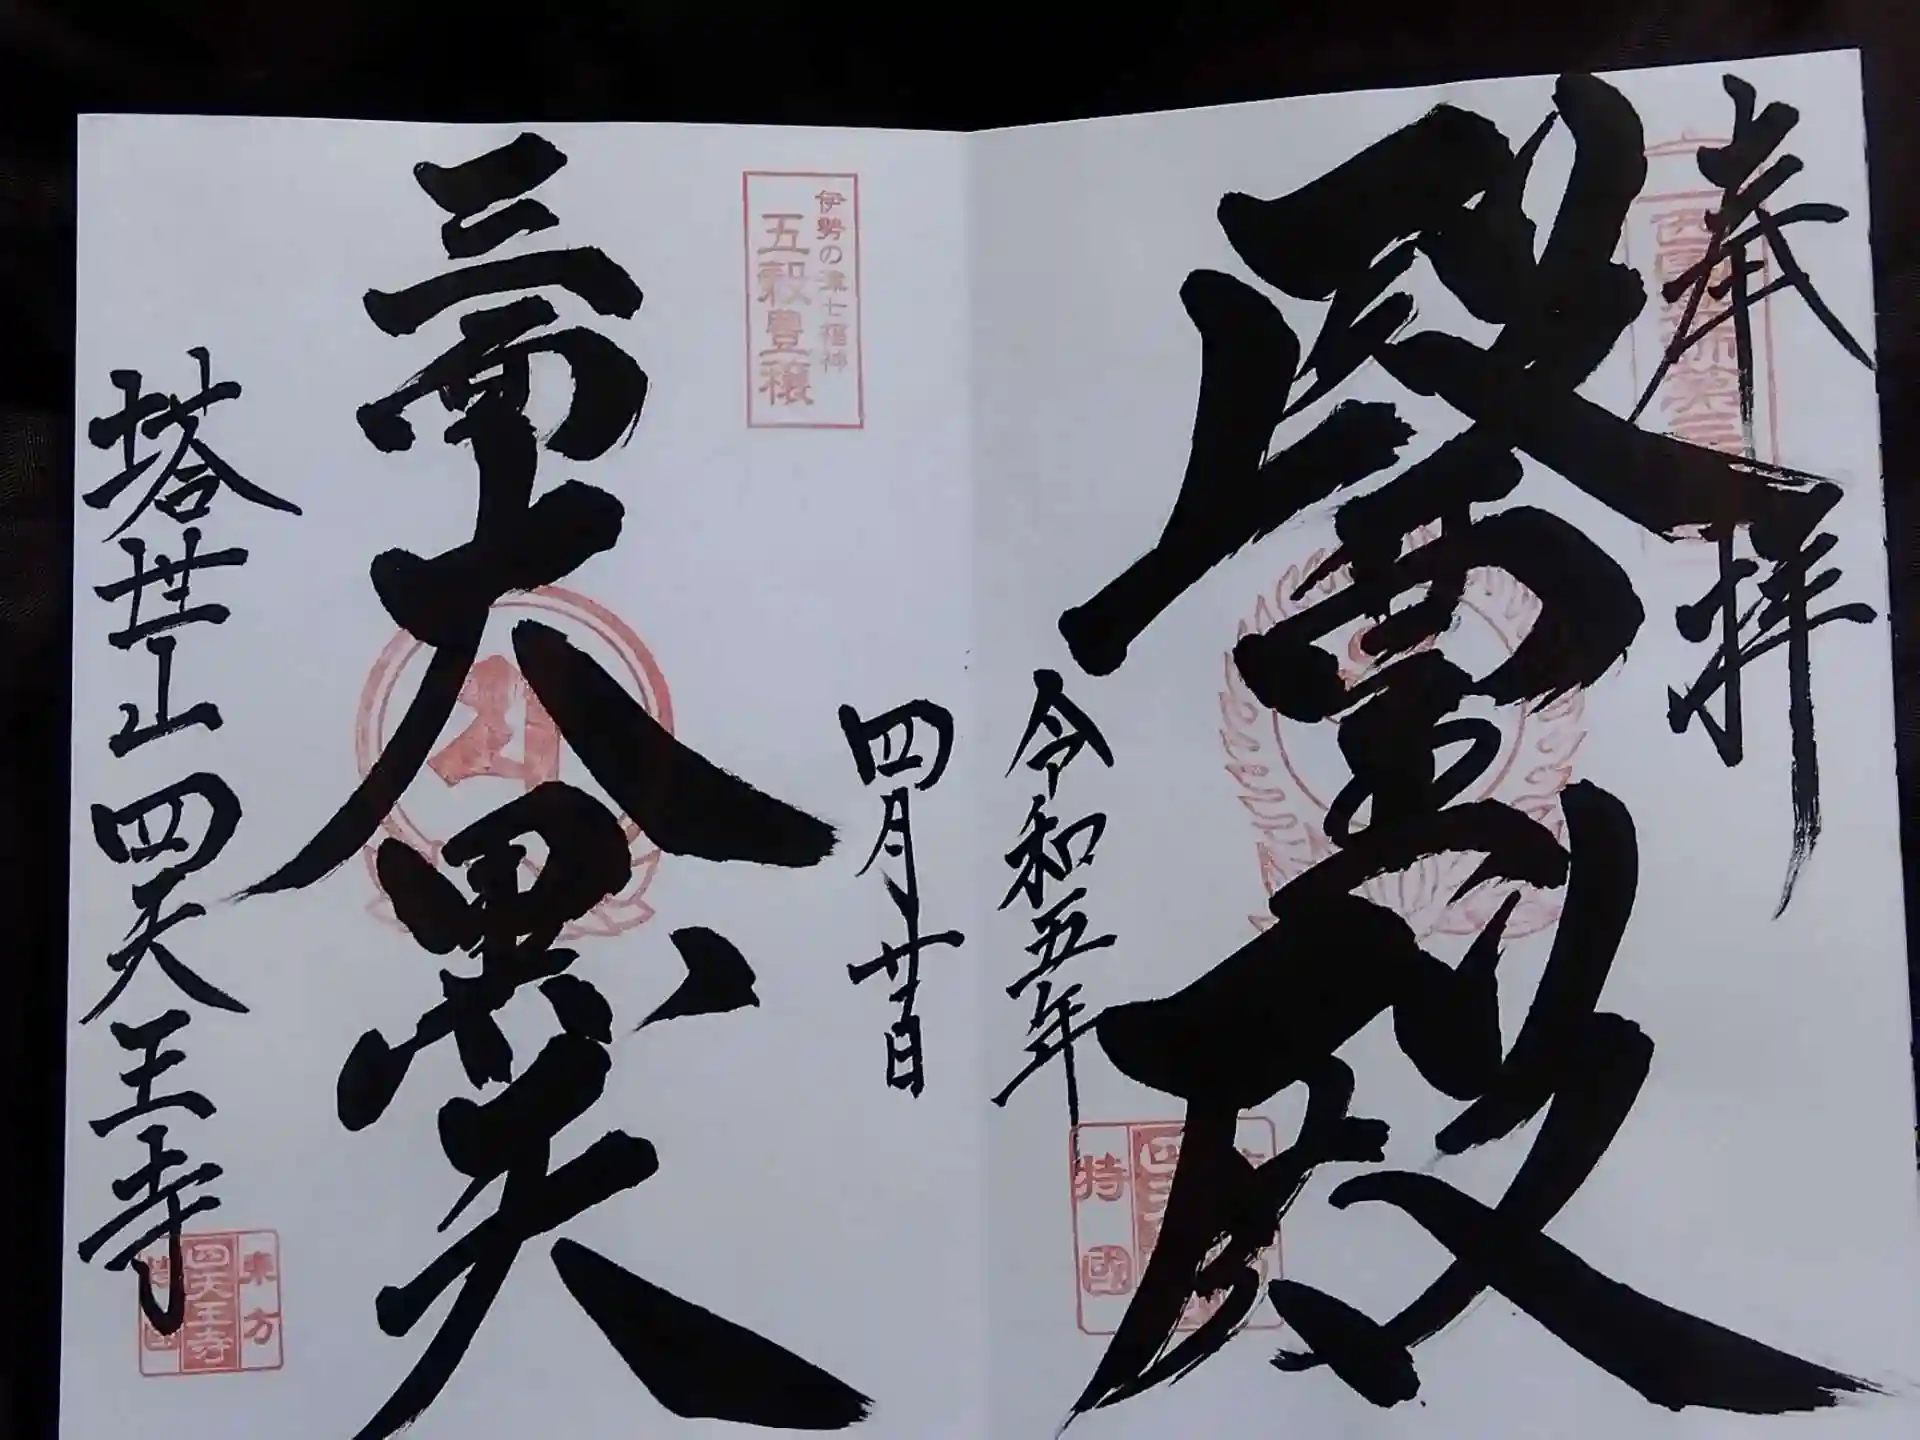 奉拝
醫王殿
令和五年
四月廿日
伊勢の津七福神
五穀豊穣
三面大黒天
塔世山四天王寺
東方
四天王寺
持國